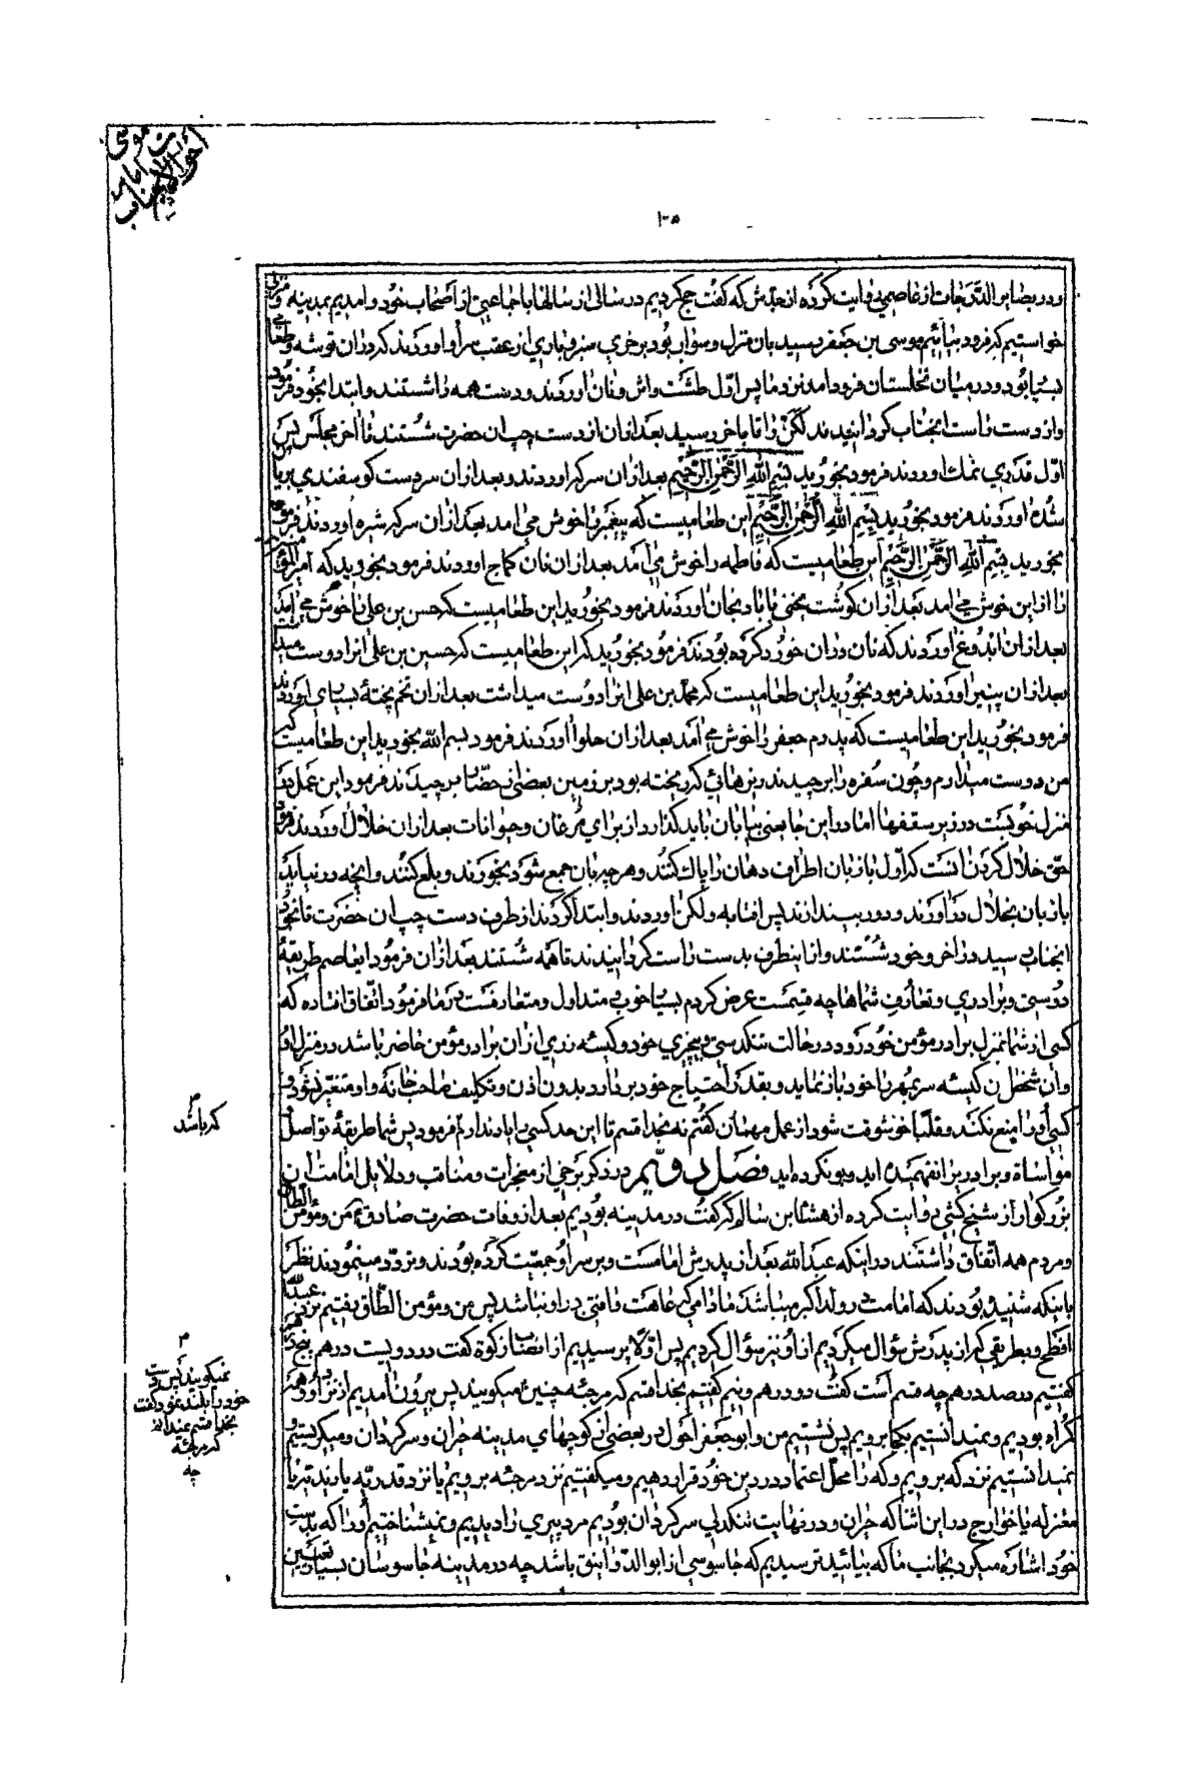 احوالات موسی
۱۰۵
و در بصایر الدرجات از عاصمی روایت کرده از جدش که گفت حج کردیم در سالی از سالها با جماعتی از اصحاب خود و امدیم بمدینه و منزلی
خواستیم که فرود بیائیم موسی بن جعفر رسید بان منزل و سوار بود بر خری سبز و باری از عقب سر او اوردند که دران توشه و طعامی
بسیار بود و در میان نخلستان فرود امد نزد ما پس اول طشت و اش و نان اوردند و دست همه را شستند و ابتدا بخود فرمود
و از دست راست انجناب گردانیدند لکن را تا باخر رسید بعد ازان از دست چپ ان حضرت شستند تا اخر مجلس پس
اول قدری نمک اوردند فرمود بخورید بسم الله الرحمن الرحیم بعد ازان سرکه اوردند و بعد ازان سردست کوسفندی بریان
شده اوردند فرمود بخورید بسم الله الرحمن الرحیم این طعامیست که پیغمبر را خوش می امد بعد ازان سرکه شیره اوردند فرمود
بخورید بسم الله الرحمن الرحیم این طعامیست که فاطمه را خوش می امد بعد ازان نان کماج اوردند فرمود بخورید که امیرالمؤمنین
را از این خوش می امد بعد ازان کوشت یخنی با بادنجان اوردند فرمود بخورید این طعامیست که حسن بن علی را خوش می امد
بعد ازان ابدوغ اوردند که نان دران خورد کرده بودند فرمود بخورید که این طعامیست که حسین بن علی انرا دوست میداشت
بعد ازان پنیر اوردند فرمود بخورید این طعامیست که محمد بن علی انرا دوست میداشت بعد ازان تخم پخته بسیاری اوردند
فرمود بخورید این طعامیست که پدرم جعفر را خوش می امد بعد ازان حلوا اوردند فرمود بسم الله بخورید این طعامیست که
من دوست میدارم و چون سفره را برچیدند ریزهائی که ریخته بود بر زمین بعضی از حضار برچیدند فرمود این عمل در
منزل خوبست در زیر سقفها اما در این جا یعنی بیابان باید کذارد از برای مرغان و حیوانات بعد ازان خلال اوردند فرمود
حق خلال کردن انست که اول با زبان اطراف دهان را پاک کنند و هرچه بزبان جمع شود بخورند و بلع کنند و انچه در نیاید
با زبان بخلال دراورند و دور بیندازند پس افتابه و لکن اوردند و ابتدا کردند از طرف دست چپ ان حضرت تا بخود
انجناب رسید در اخر و خود شستند و از اینطرف بدست راست کردانیدند تا همه شستند بعد ازان فرمود ایعاصم طریقه
دوستی و برادری و تعارف شماها چه قسمست عرض کردم بسیار خوب متداول و متعارفست در ما فرمود اتفاق افتاده که
کسی از شما بمنزل برادر مؤمن خود رود در حالت تنکدستی و بیچیزی خود و کیسه زری ازان برادر مؤمن حاضر باشد در منزل او
و ان شخص ان کیسه سر بمهر را خود باز نماید و بقدر احتیاج خود بردارد بدون اذن و تکلیف صاحب خانه و او متغیر نشود و
کسی او را منع نکند و قلبا خوشوقت شود از عمل مهمان کفتم نه بخدا قسم تا این حد کسی را یاد ندارم فرمود پس شما طریقه تواصل
که باشد
مواساة و برادر برا نفهمیده اید و بو نکرده اید فصل دویم در ذکر برخی از معجزات و مناقب و دلایل امامت ان
بزرکوار از شیخ کشی روایت کرده از هشام بن سالم که گفت در مدینه بودیم بعد از وفات حضرت صادق من و مؤمن الطاق
و مردم همه اتفاق داشتند در اینکه عبدالله بعد از پدرش امامست و بر سر او جمعیت کرده بودند و تردد مینمودند نظر
باینکه شنیده بودند که امامت در ولد اکبر میباشد مادامی که عاهت و افتی در او نباشد پس من و مؤمن الطاق رفتیم نزد عبدالله
افطح و بطریقی که از پدرش سؤال میکردیم از او نیز سؤال کردیم پس اولا پرسیدیم از نصاب زکوة کفت در دویست درهم پنج درهم
کفتیم در صد درهم چه قسم است کفت دو درهم و نیم کفتیم بخدا قسم که مرجئه چنین نمیکویند پس بیرون امدیم از نزد او و همه
نمیکویند پس دست
خود را بلند نمود گفت
بخدا قسم نمیدانم
که مرجئه
چه
کمراه بودیم و نمیدانستیم بکجا برویم پس نشستیم من و ابو جعفر احول در بعضی از کوچهای مدینه حیران و سرکردان و میکریستیم و
نمیدانستیم نزد که برویم و که را محل اعتماد در دین خود قرار دهیم و میکفتیم نزد مرجئه برویم یا نزد قدریه یا زیدیه یا
معتزله یا خوارج در این اثنا که حیران و در نهایت تنکدلی سرکردان بودیم مرد پیری را دیدیم و نمیشناختیم او را که بدست
خود اشاره میکرد بجانب ما که بیائید ترسیدیم که جاسوسی از ابوالدوانیق باشد چه در مدینه جاسوسان بسیار تعیین